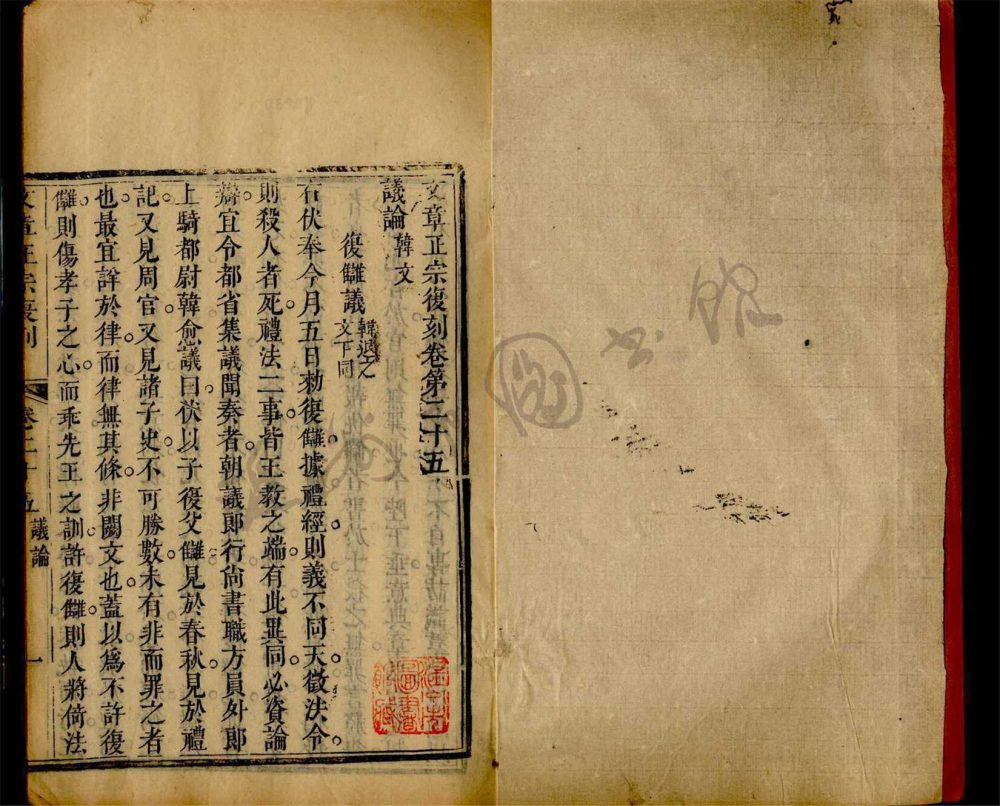 文章正宗復刻卷第二十五
議論 韓文
復讎議 韓退之文下同
右伏奉今月五日勑復讎據禮經則義不同天徵法令
則殺人者死禮法二事皆王教之端有此異同必資論
辯宜令都省集議聞奏者朝議郎行尚書職方員外郎
上騎都尉韓愈議曰伏以子復父讎見於春秋見於禮
記又見周官又見諸子史不可勝數未有非而罪之者
也最宜詳於律而律無其條非闕文也蓋以爲不許復
讎則傷孝子之心而乖先王之訓許復讎則人將倚法
文章正宗復刻 卷二十五 議論 一